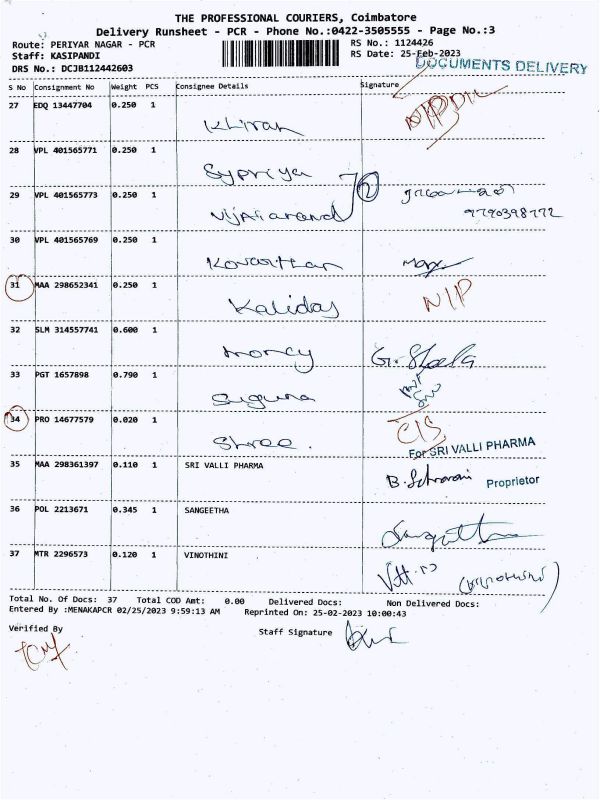 THE PROFESSIONAL COURIERS, Coimbatore
Delivery Runsheet - PCR - Phone No.:0422-3505555 - Page No.:3
Route: PERIYAR NAGAR - PCR
RS No.: 1124426
Staff: KASIPANDI
RS Date: 25-Feb-2023
DRS No.: DCJB112442603
DOCUMENTS DELIVERY
S No Consignment No Weight PCS Consignee Details Signature
27 EDQ 13447704 0.250 1
28 VPL 401565771 0.250 1 Sypriya
29 VPL 401565773 0.250 1 Vijaianand 2
9790398772
30 VPL 401565769 0.250 1
31 MAA 298652341 0.250 1 Kalidas N/P
32 SLM 314557741 0.600 1 G. Sheela
33 PGT 1657898 0.790 1 Suguna
34 PRO 14677579 0.020 1 Shree. C/S
For SRI VALLI PHARMA
35 MAA 298361397 0.110 1 SRI VALLI PHARMA
Proprietor
36 POL 2213671 0.345 1 SANGEETHA
37 MTR 2296573 0.120 1 VINOTHINI
Total No. Of Docs: 37 Total COD Amt: 0.00 Delivered Docs: Non Delivered Docs:
Entered By :MENAKAPCR 02/25/2023 9:59:13 AM Reprinted On: 25-02-2023 10:00:43
Verified By
Staff Signature